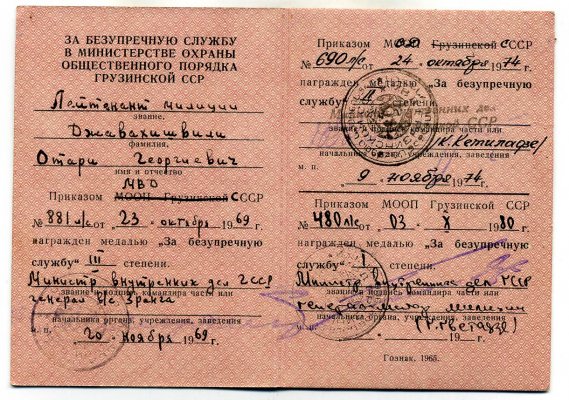 ЗА БЕЗУПРЕЧНУЮ СЛУЖБУ
В МИНИСТЕРСТВЕ ОХРАНЫ
ОБЩЕСТВЕННОГО ПОРЯДКА
ГРУЗИНСКОЙ ССР
Лейтенант милиции
звание,
Джавахишвили
фамилия,
Отари Георгиевич
имя и отчество
Приказом МООП Грузинской ССР
№ 881 л/с от 23 октября 1969 г.
награжден медалью „За безупречную
службу" III степени.
Министр внутренних дел ГССР
звание и подпись командира части или
генерал
начальника органа, учреждения, заведения
м. п.
20 ноября 1969 г.
Приказом Грузинской ССР
№ 690 л/с от 24 октября 1974 г.
награжден медалью „За безупречную
службу" II степени.
начальника органа, учреждения, заведения
м. п.
9 ноября 1974 г.
Приказом МООП Грузинской ССР
№ 480 л/с от 03 X 1980 г.
награжден медалью „За безупречную
службу" I степени.
Министр внутренних дел ГССР
звание и подпись командира части или
милиции
начальника органа, учреждения, заведения
19 г.
Гознак. 1965.